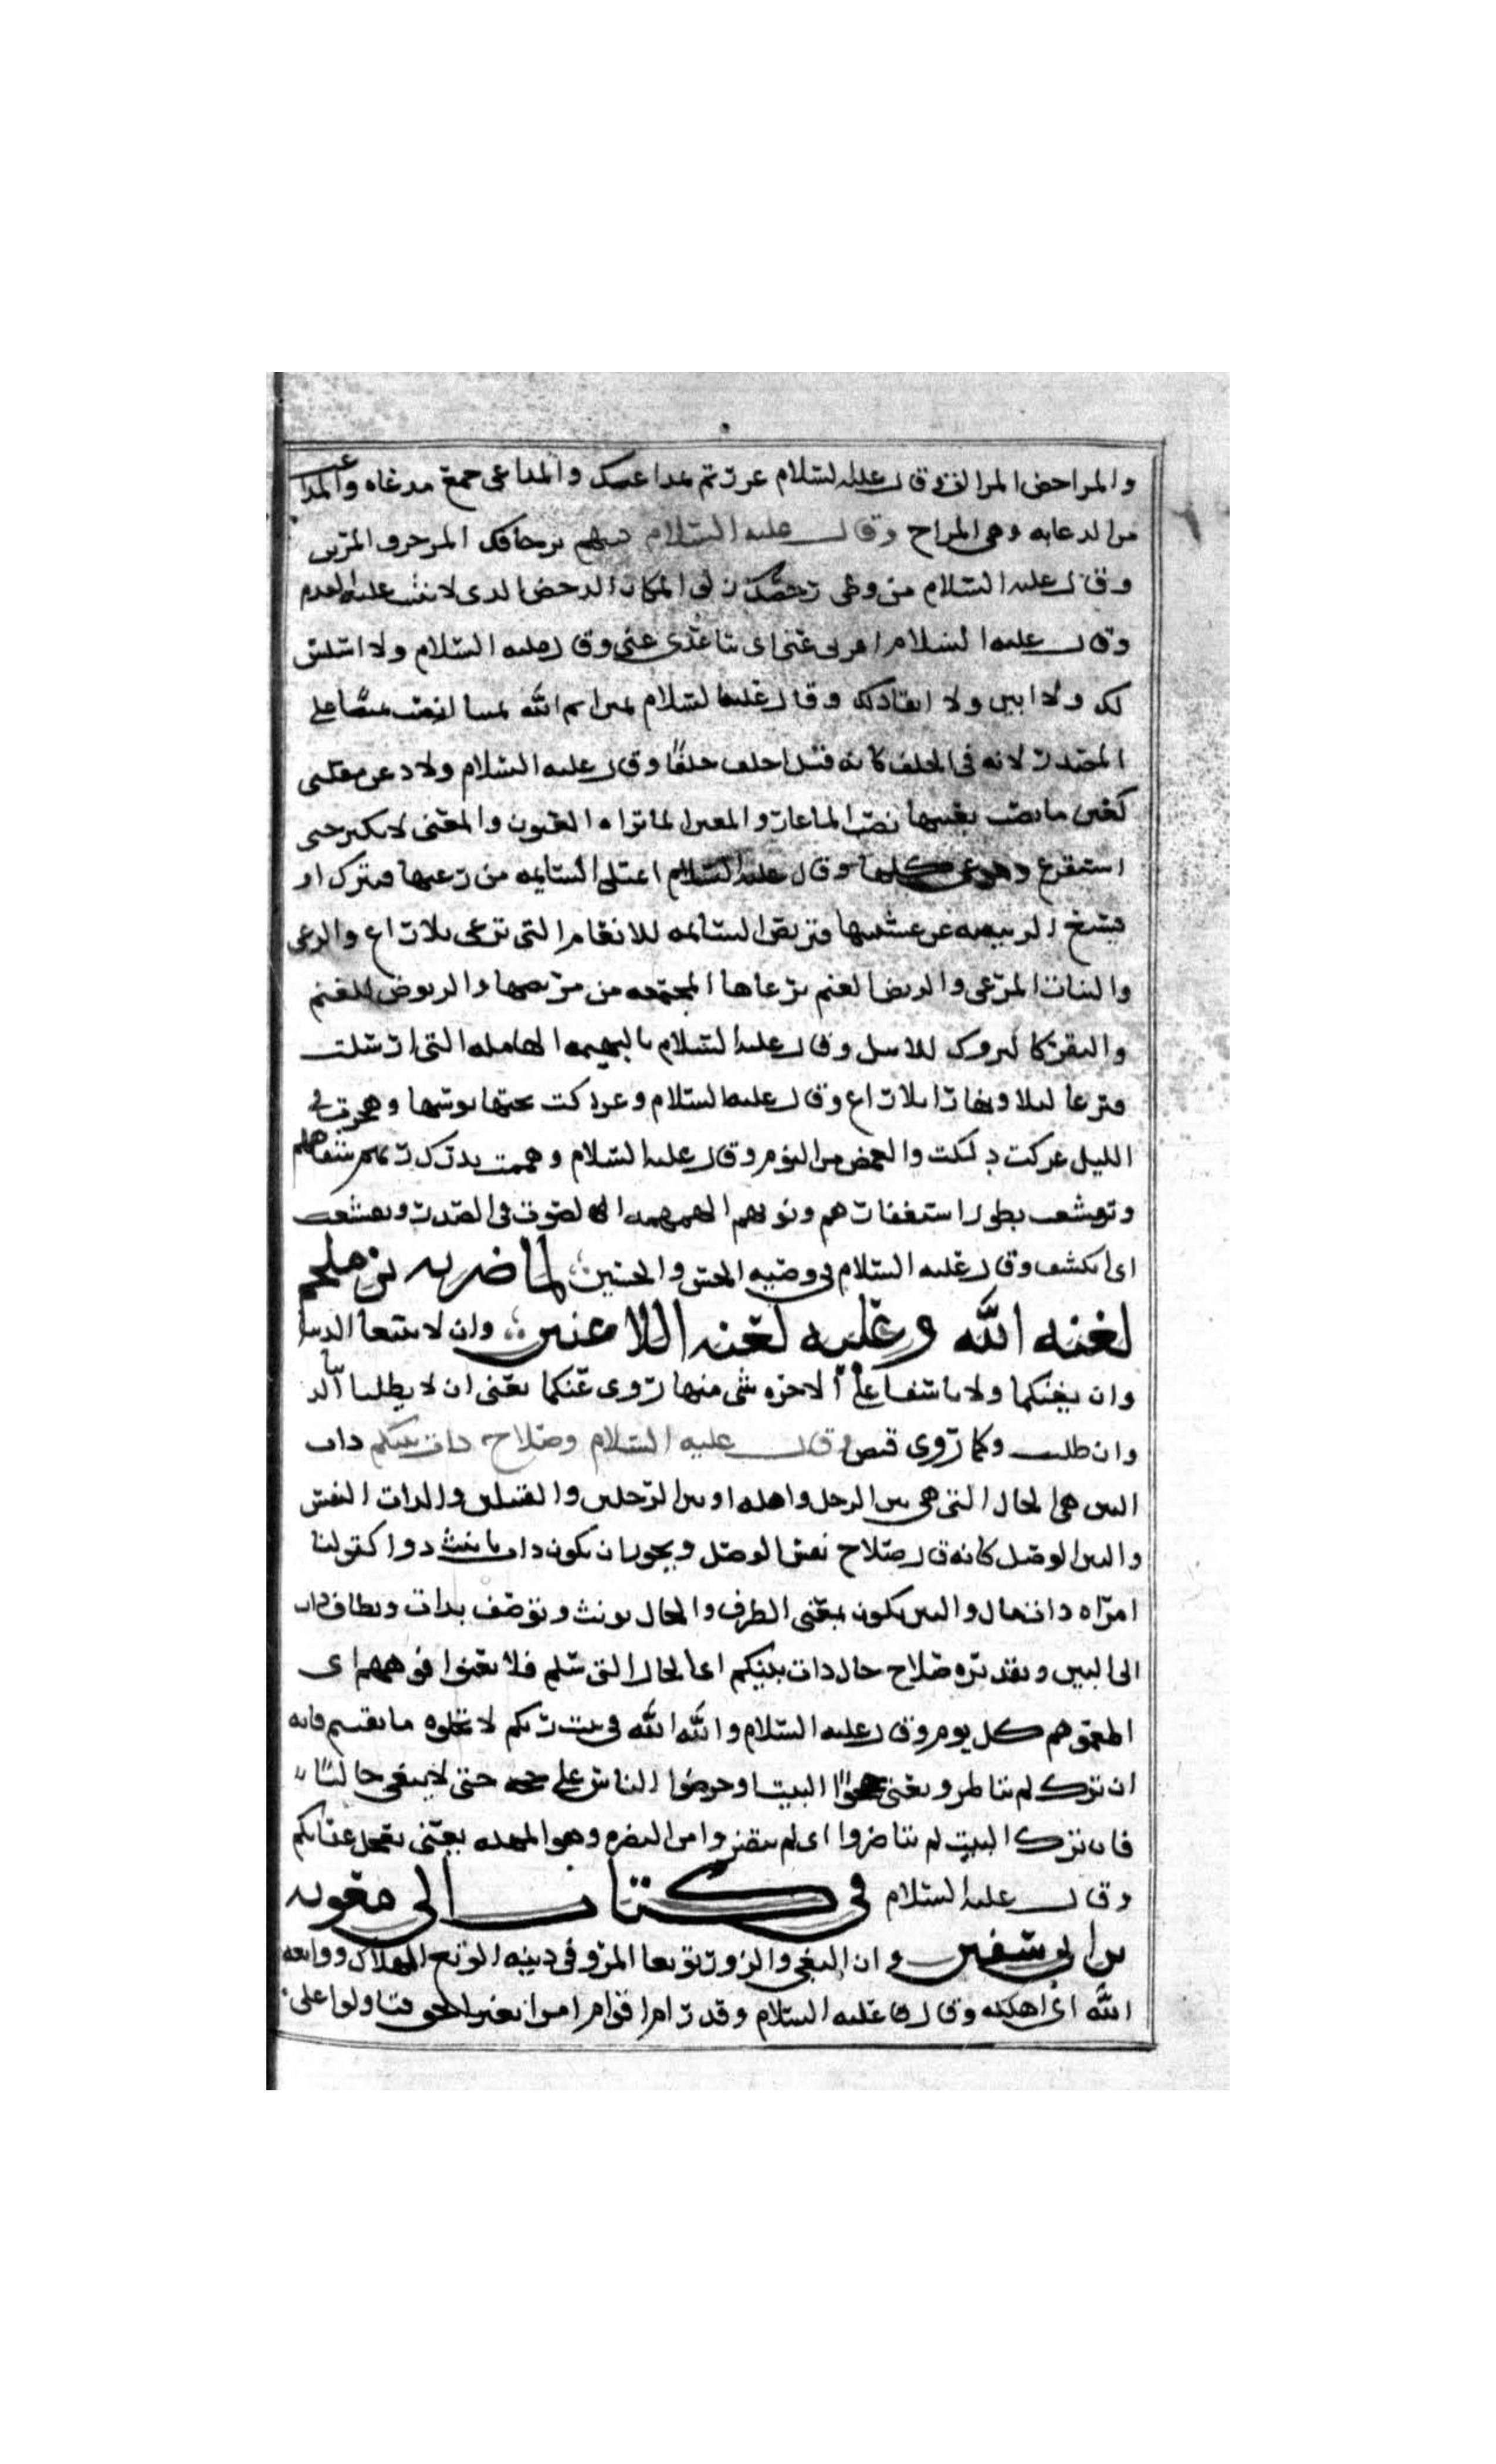 والمراحض المزالق وقال عليه السلام غررتم بمداعبك والمداعى جمع مدعاه والمدا
من الدعابه وهى المزاح وقال عليه السلام بزخارفك المزخرف المزين
وقال عليه السلام من وطى دحضك زلق المكان الدحض الذى لا يثبت عليه القدم
وقال عليه السلام اعزبى عنى اى تباعدى عنى وقال عليه السلام ولا اسلس
لك ولا ابين ولا انقاد لك وقال عليه السلام يمين الله يمينا على
المصدر لانه فى الحلف كانه قال احلف حلفا وقال عليه السلام ولادعن مقلتى
كعين ما نضب معينها نضب الماء غار والمعين لما تراه العيون والمعنى لابكين حتى
استفرغ دموعى كلها وقال عليه السلام اتمتلى السايمه من رعيها فتبرك او
تشبع الربيضه من عشبها فتربض السائمه للانعام التى ترعى بلا راع والرعى
والنبات المرعى والربيض الغنم برعاها المجتمعه من مربضها والربوض للغنم
والبقر كالبروك للابل وقال عليه السلام بالبهيمه الهامله التى ارسلت
فترعا ليلا ونهارا بلا راع وقال عليه السلام وعركت بجنبها بوسها وهجرت فى
الليل عركت دلكت والغمض من النوم وقال عليه السلام وهمهمت بذكر ربهم شفاههم
وتقشعت بطول استغفارهم ذنوبهم الهمهمه الصوت فى الصدر وتقشعت
اى انكشف وقال عليه السلام فى وصيه الحسن والحسين لما ضربه بن ملجم
لعنه الله وعليه لعنه اللاعنين وان لا تبتغيا الدنيا
وان بغتكما ولا تاسفا على الاخره شى منها زوى عنكما يعنى ان لا يطلبا الدنيا
وان طلبت وكما زوى قبض وقال عليه السلام وصلاح ذات بينكم ذات
البين هى الحال التى هى بين الرجل واهله او بين الرجلين والقبيلين والذات النفس
والبين الوصل كانه قال صلاح نفس الوصل ويجوز ان يكون ذات تانيث ذو كقولنا
امراه ذات مال والبين يكون بمعنى الظرف والحال يونث وتوصف بذات ويضاف ذات
الى البين وتقديره صلاح حال ذات بينكم اى الحال التى سلم فلا تغبوا افواههم اى
اطعموهم كل يوم وقال عليه السلام والله الله فى بيت ربكم لا تخلوه ما بقيتم فانه
ان ترك لم تناظروا يعنى حجوا البيت وحرضوا الناس على حجه حتى لا يبقى خاليا
فان ترك البيت لم تناظروا اى لم من النظره وهو المهله بمعنى يعجل عذابكم
وقال عليه السلام فى كتاب الى معويه
بن ابى سفين وان البغى والزور يوتغان المرء فى دينه الوتغ الهلاك واوتغه
الله اى اهلكه وقال عليه السلام وقد رام اقوام امرا بغير الحق فتاولوا على